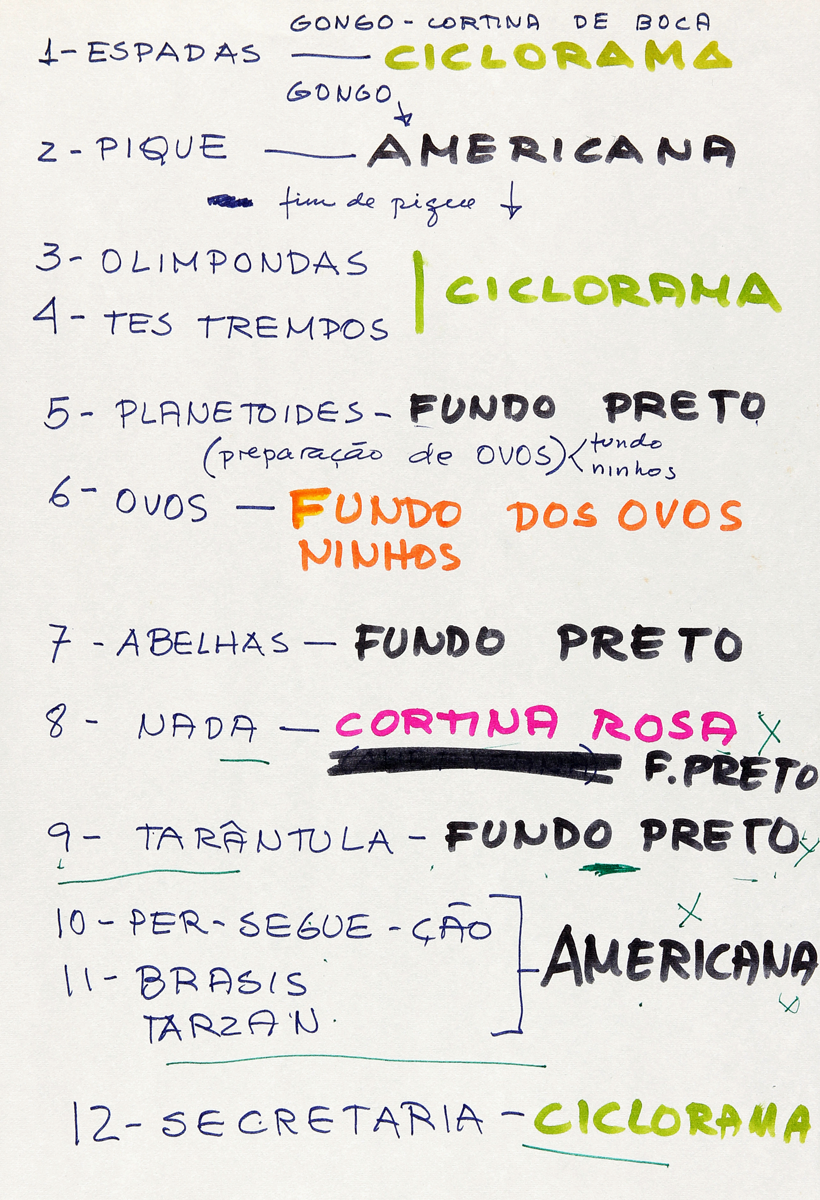 GONGO - CORTINA DE BOCA
1- ESPADAS — CICLORAMA
GONGO
2 - PIQUE — AMERICANA
fim de pique ↓
3- OLIMPONDAS
CICLORAMA
4- TES TREMPOS
5- PLANETOIDES - FUNDO PRETO
(preparação de OVOS) < fundo
ninhos
6- OVOS — FUNDO DOS OVOS
NINHOS
7 - ABELHAS — FUNDO PRETO
8 - NADA — CORTINA ROSA X
F. PRETO
9- TARÂNTULA - FUNDO PRETO
10- PER-SEGUE-ÇÃO
X
AMERICANA
11- BRASIS
TARZAN
X
12- SECRETARIA - CICLORAMA